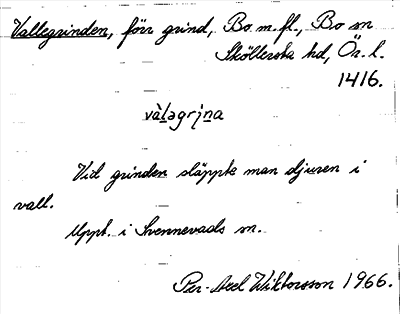 Vallegrinden, förr grind, Bo m.fl., Bo sn
Sköllersta hd, Ör. l.
1416.
vàləgrịna
Vid grinden släppte man djuren i
vall.
Uppt. i Svennevads sn.
Per-Axel Wiktorsson 1966.